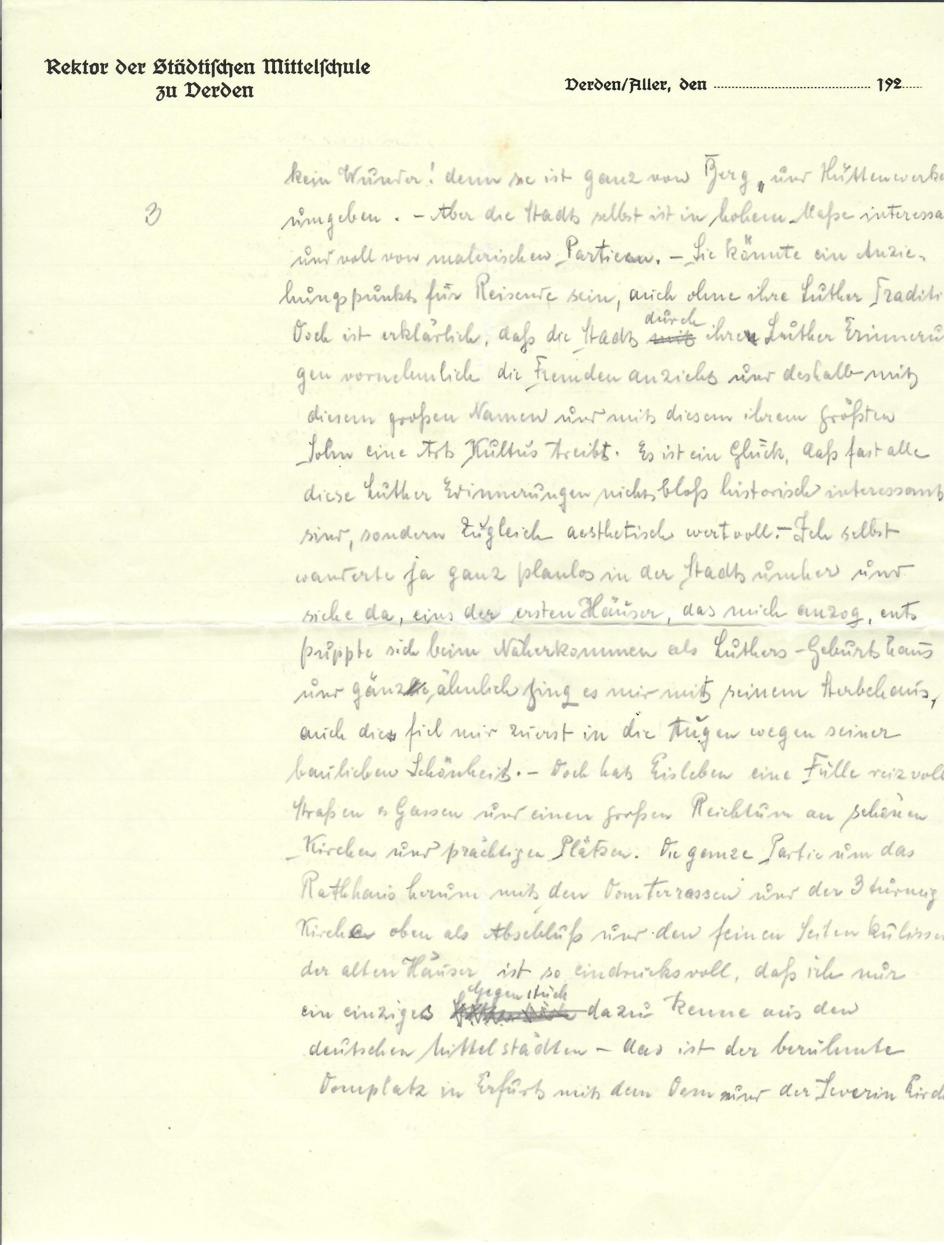 Rektor der Städtischen Mittelschule
zu Verden
Verden/Aller, den 192
3
kein Wunder! denn sie ist ganz von Berg „ und Hüttenwerke
umgeben. – Aber die Stadt selbst ist in hohem Maße interessa
und voll von malerischen Partieen. – Sie könnte ein Anzie-
hungspunkt für Reisende sein, auch ohne ihre Luther Traditi
Doch ist erklärlich, daß die Stadt mit durch ihren Luther Erinneru
gen vornehmlich die Fremden anzieht und deshalb mit
diesem großen Namen und mit diesem ihrem größten
Sohn eine Art Kultus treibt. Es ist ein Glück, daß fast alle
diese Luther Erinnerungen nicht bloß historisch interessant
sind, sondern zugleich aesthetisch wertvoll. – Ich selbst
wanderte ja ganz planlos in der Stadt umher und
siehe da, eins der ersten Häuser, das mich anzog, ent
puppte sich beim Näherkommen als Luthers-Geburtshaus
und ganz ähnlich ging es mir mit seinem Sterbehaus,
auch dies fiel mir zuerst in die Augen wegen seiner
baulichen Schönheit. – Doch hat Eisleben eine Fülle reizvoll
Straßen u Gassen und einen großen Reichtum an schönen
Kirchen und prächtigen Plätzen. Die ganze Partie um das
Rathhaus herum mit den Domterrassen und der 3 türmig
Kirche oben als Abschluß und den feinen Seiten kulissen
der alten Häuser, ist so eindrucksvoll, daß ich nur
ein einziges Gegenstück dazu kenne aus den
deutschen Mittelstädten – das ist der berühmte
Domplatz in Erfurt mit dem Dom und der Severin Kirch